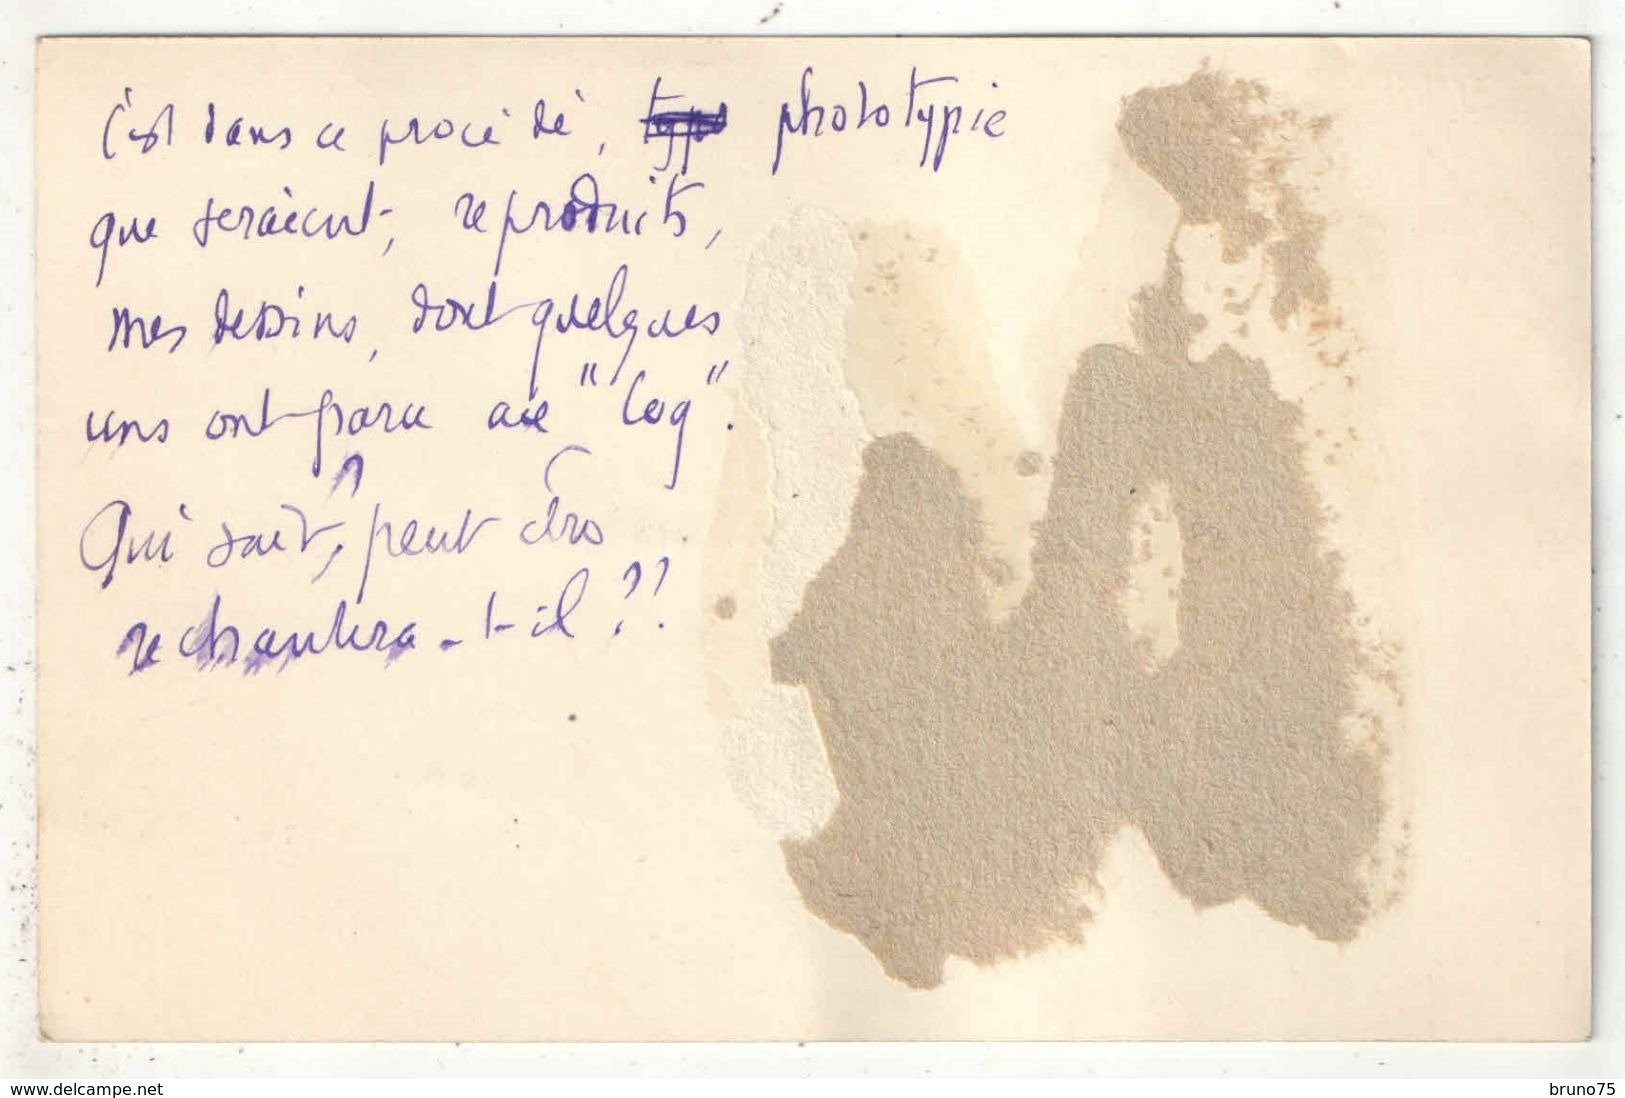 C'est dans ce procédé, phototypie
que seraient, reproduits,
mes dessins, dont quelques
uns ont paru au "Coq".
Qui sait, peut être
rechantera-t-il ??
www.delcampe.net
bruno75